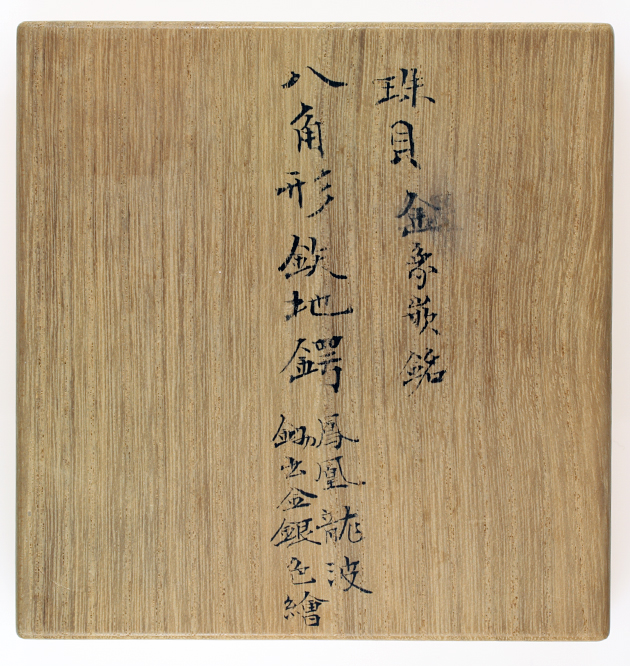 珠貝 金象嵌銘
八角形鉄地鍔
鳳凰龍波
鋤出金銀色繪